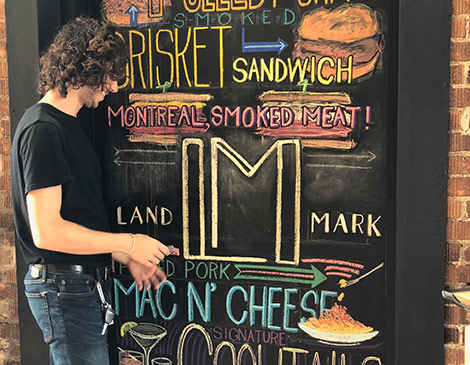 PULLED PORK
SMOKED
BRISKET SANDWICH
MONTREAL SMOKED MEAT!
LAND LM MARK
PORK
MAC N' CHEESE
SIGNATURE
COCKTAILS